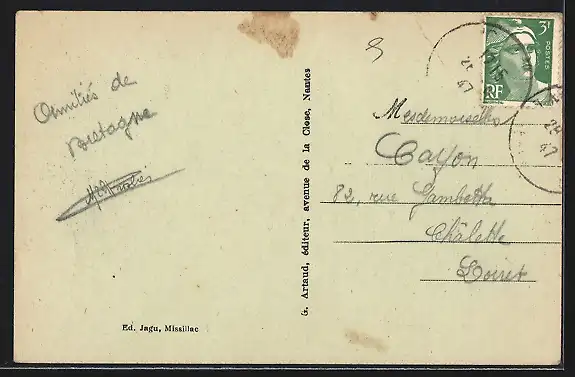 Amitiés de
Bretagne
Ed. Jagu, Missillac
G. Artaud, éditeur, avenue de la Close, Nantes
3F
POSTES
RF
47
Mesdemoiselles
Cayon
82, rue Gambetta
Châlette
Loiret
28
47